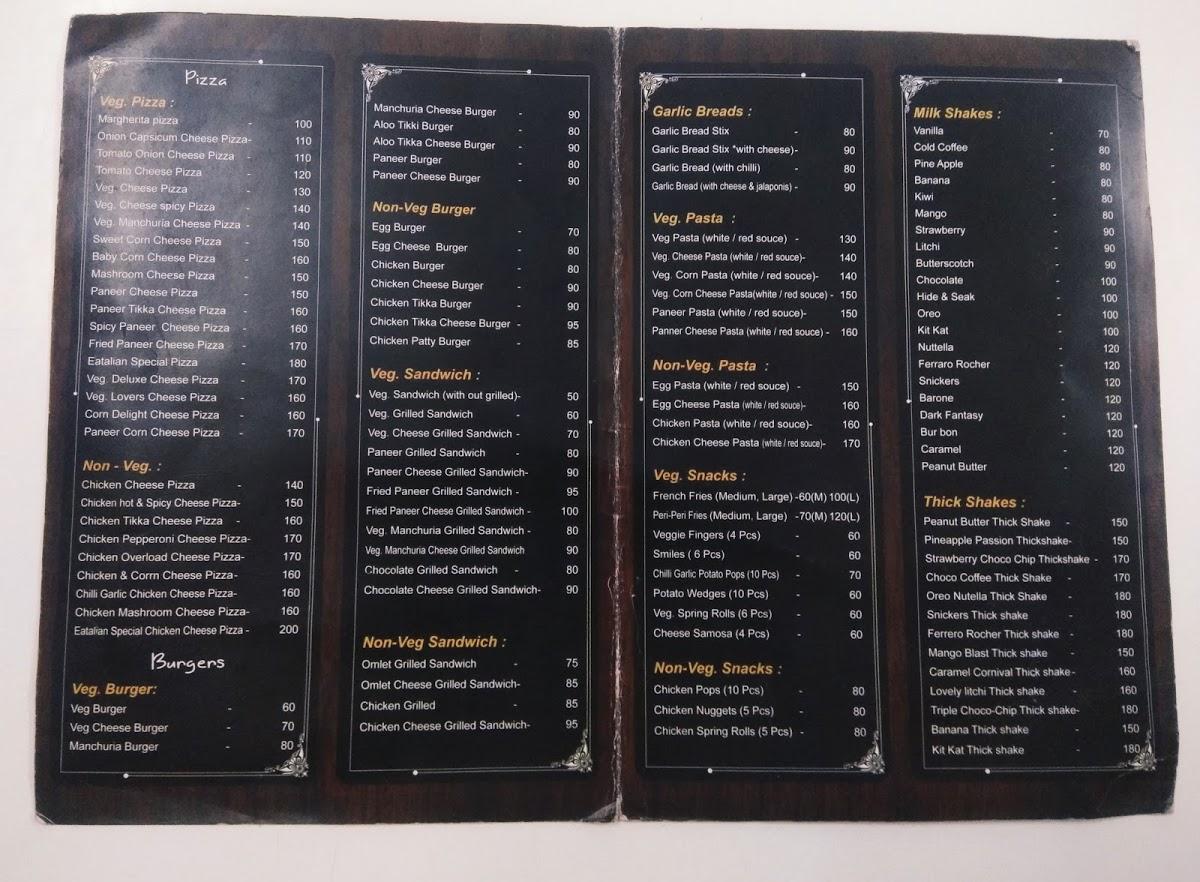 Pizza
Veg. Pizza :
Margherita pizza - 100
Onion Capsicum Cheese Pizza- 110
Tomato Onion Cheese Pizza - 110
Tomato Cheese Pizza - 120
Veg. Cheese Pizza - 130
Veg. Cheese spicy Pizza - 140
Veg. Manchuria Cheese Pizza - 140
Sweet Corn Cheese Pizza - 150
Baby Corn Cheese Pizza - 160
Mashroom Cheese Pizza - 150
Paneer Cheese Pizza - 150
Paneer Tikka Cheese Pizza - 160
Spicy Paneer Cheese Pizza - 160
Fried Paneer Cheese Pizza - 170
Eatalian Special Pizza - 180
Veg. Deluxe Cheese Pizza - 170
Veg. Lovers Cheese Pizza - 160
Corn Delight Cheese Pizza - 160
Paneer Corn Cheese Pizza - 170
Non - Veg. :
Chicken Cheese Pizza - 140
Chicken hot & Spicy Cheese Pizza- 150
Chicken Tikka Cheese Pizza - 160
Chicken Pepperoni Cheese Pizza- 170
Chicken Overload Cheese Pizza- 170
Chicken & Corrn Cheese Pizza- 160
Chilli Garlic Chicken Cheese Pizza- 160
Chicken Mashroom Cheese Pizza- 160
Eatalian Special Chicken Cheese Pizza - 200
Burgers
Veg. Burger:
Veg Burger - 60
Veg Cheese Burger - 70
Manchuria Burger - 80
Manchuria Cheese Burger - 90
Aloo Tikki Burger - 80
Aloo Tikka Cheese Burger - 90
Paneer Burger - 80
Paneer Cheese Burger - 90
Non-Veg Burger
Egg Burger - 70
Egg Cheese Burger - 80
Chicken Burger - 80
Chicken Cheese Burger - 90
Chicken Tikka Burger - 90
Chicken Tikka Cheese Burger - 95
Chicken Patty Burger - 85
Veg. Sandwich :
Veg. Sandwich (with out grilled)- 50
Veg. Grilled Sandwich - 60
Veg. Cheese Grilled Sandwich - 70
Paneer Grilled Sandwich - 80
Paneer Cheese Grilled Sandwich- 90
Fried Paneer Grilled Sandwich - 95
Fried Paneer Cheese Grilled Sandwich - 100
Veg. Manchuria Grilled Sandwich - 80
Veg. Manchuria Cheese Grilled Sandwich 90
Chocolate Grilled Sandwich - 80
Chocolate Cheese Grilled Sandwich- 90
Non-Veg Sandwich :
Omlet Grilled Sandwich - 75
Omlet Cheese Grilled Sandwich- 85
Chicken Grilled - 85
Chicken Cheese Grilled Sandwich- 95
Garlic Breads :
Garlic Bread Stix - 80
Garlic Bread Stix *with cheese)- 90
Garlic Bread (with chilli) - 80
Garlic Bread (with cheese & jalaponis) - 90
Veg. Pasta :
Veg Pasta (white / red souce) - 130
Veg. Cheese Pasta (white / red souce)- 140
Veg. Corn Pasta (white / red souce)- 140
Veg. Corn Cheese Pasta(white / red souce) - 150
Paneer Pasta (white / red souce)- 150
Panner Cheese Pasta (white / red souce) - 160
Non-Veg. Pasta :
Egg Pasta (white / red souce) - 150
Egg Cheese Pasta (white / red souce)- 160
Chicken Pasta (white / red souce) - 160
Chicken Cheese Pasta (white / red souce)- 170
Veg. Snacks :
French Fries (Medium, Large) -60(M) 100(L)
Peri-Peri Fries (Medium, Large) -70(M) 120(L)
Veggie Fingers (4 Pcs) - 60
Smiles ( 6 Pcs) - 60
Chilli Garlic Potato Pops (10 Pcs) - 70
Potato Wedges (10 Pcs) - 60
Veg. Spring Rolls (6 Pcs) - 60
Cheese Samosa (4 Pcs) - 60
Non-Veg. Snacks :
Chicken Pops (10 Pcs) - 80
Chicken Nuggets (5 Pcs) - 80
Chicken Spring Rolls (5 Pcs) - 80
Milk Shakes :
Vanilla - 70
Cold Coffee - 80
Pine Apple - 80
Banana - 80
Kiwi - 80
Mango - 80
Strawberry - 90
Litchi - 90
Butterscotch - 90
Chocolate - 100
Hide & Seak - 100
Oreo - 100
Kit Kat - 100
Nuttella - 120
Ferraro Rocher - 120
Snickers - 120
Barone - 120
Dark Fantasy - 120
Bur bon - 120
Caramel - 120
Peanut Butter - 120
Thick Shakes :
Peanut Butter Thick Shake - 150
Pineapple Passion Thickshake- 150
Strawberry Choco Chip Thickshake - 170
Choco Coffee Thick Shake - 170
Oreo Nutella Thick Shake - 180
Snickers Thick shake - 180
Ferrero Rocher Thick shake - 180
Mango Blast Thick shake - 150
Caramel Cornival Thick shake- 160
Lovely litchi Thick shake - 160
Triple Choco-Chip Thick shake- 180
Banana Thick shake - 150
Kit Kat Thick shake - 180